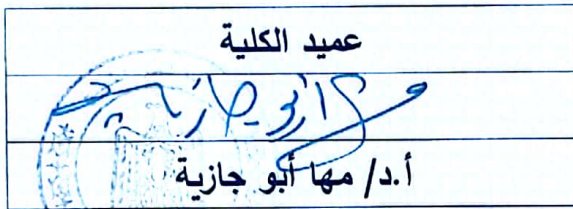 عميد الكلية
أ.د/ مها أبو جازية